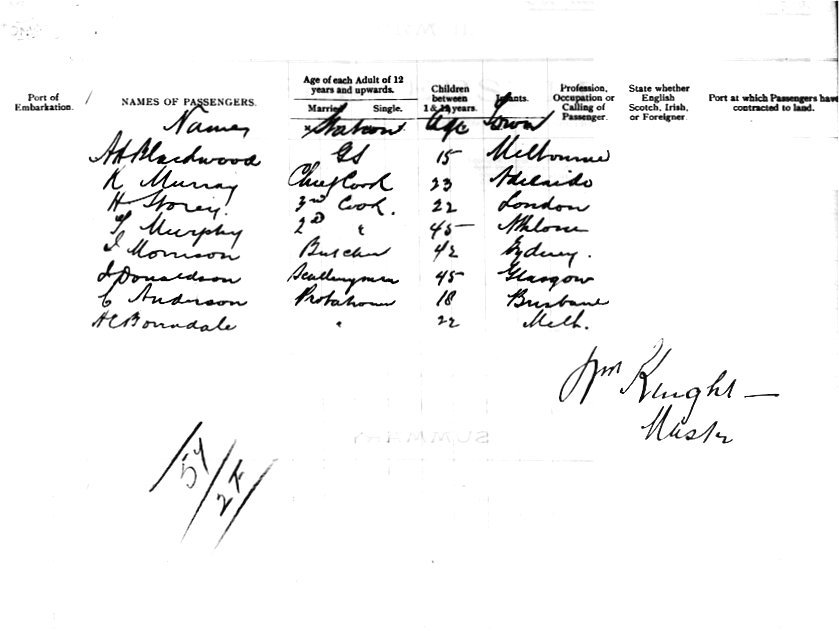 Age of each Adult of 12 years and upwards.
Port of Embarkation. / NAMES OF PASSENGERS. Married. Single. Children between 1 & 12 years. Infants. Profession, Occupation or Calling of Passenger. State whether English Scotch, Irish, or Foreigner. Port at which Passengers have contracted to land.
Names Station Age Town
AH Blackwood GS 15 Melbourne
K Murray Chief Cook 23 Adelaide
H Storey. 3rd Cook. 22 London
Murphy 2D " 45 Athlone
J Morrison Butcher 42 Sydney.
J Donaldson Sculleryman 45 Glasgow
C Anderson 18 Brisbane
" 22 Melb.
Wm Knight
Master
SUMMARY
54